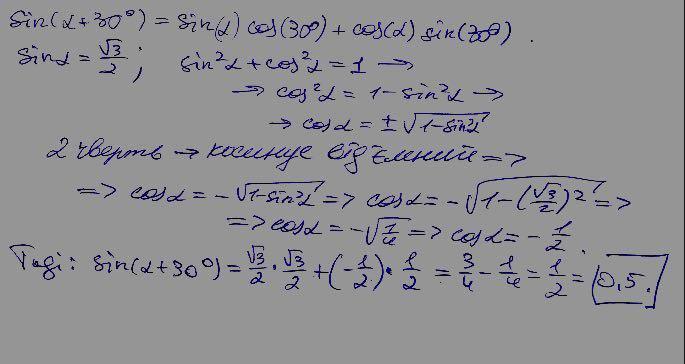 sin(α+30°) = sin(α) cos(30°) + cos(α) sin(30°).
sinα = √3/2; sin²α + cos²α = 1 →
→ cos²α = 1 - sin²α →
→ cosα = ±√(1-sin²α)
2 чверть → косинус від'ємний =>
=> cosα = -√(1-sin²α) => cosα = -√(1-(√3/2)²) =>
=> cosα = -√(1/4) => cosα = -1/2.
Тоді: sin(α+30°) = √3/2 · √3/2 + (-1/2) · 1/2 = 3/4 - 1/4 = 1/2 = 0,5.